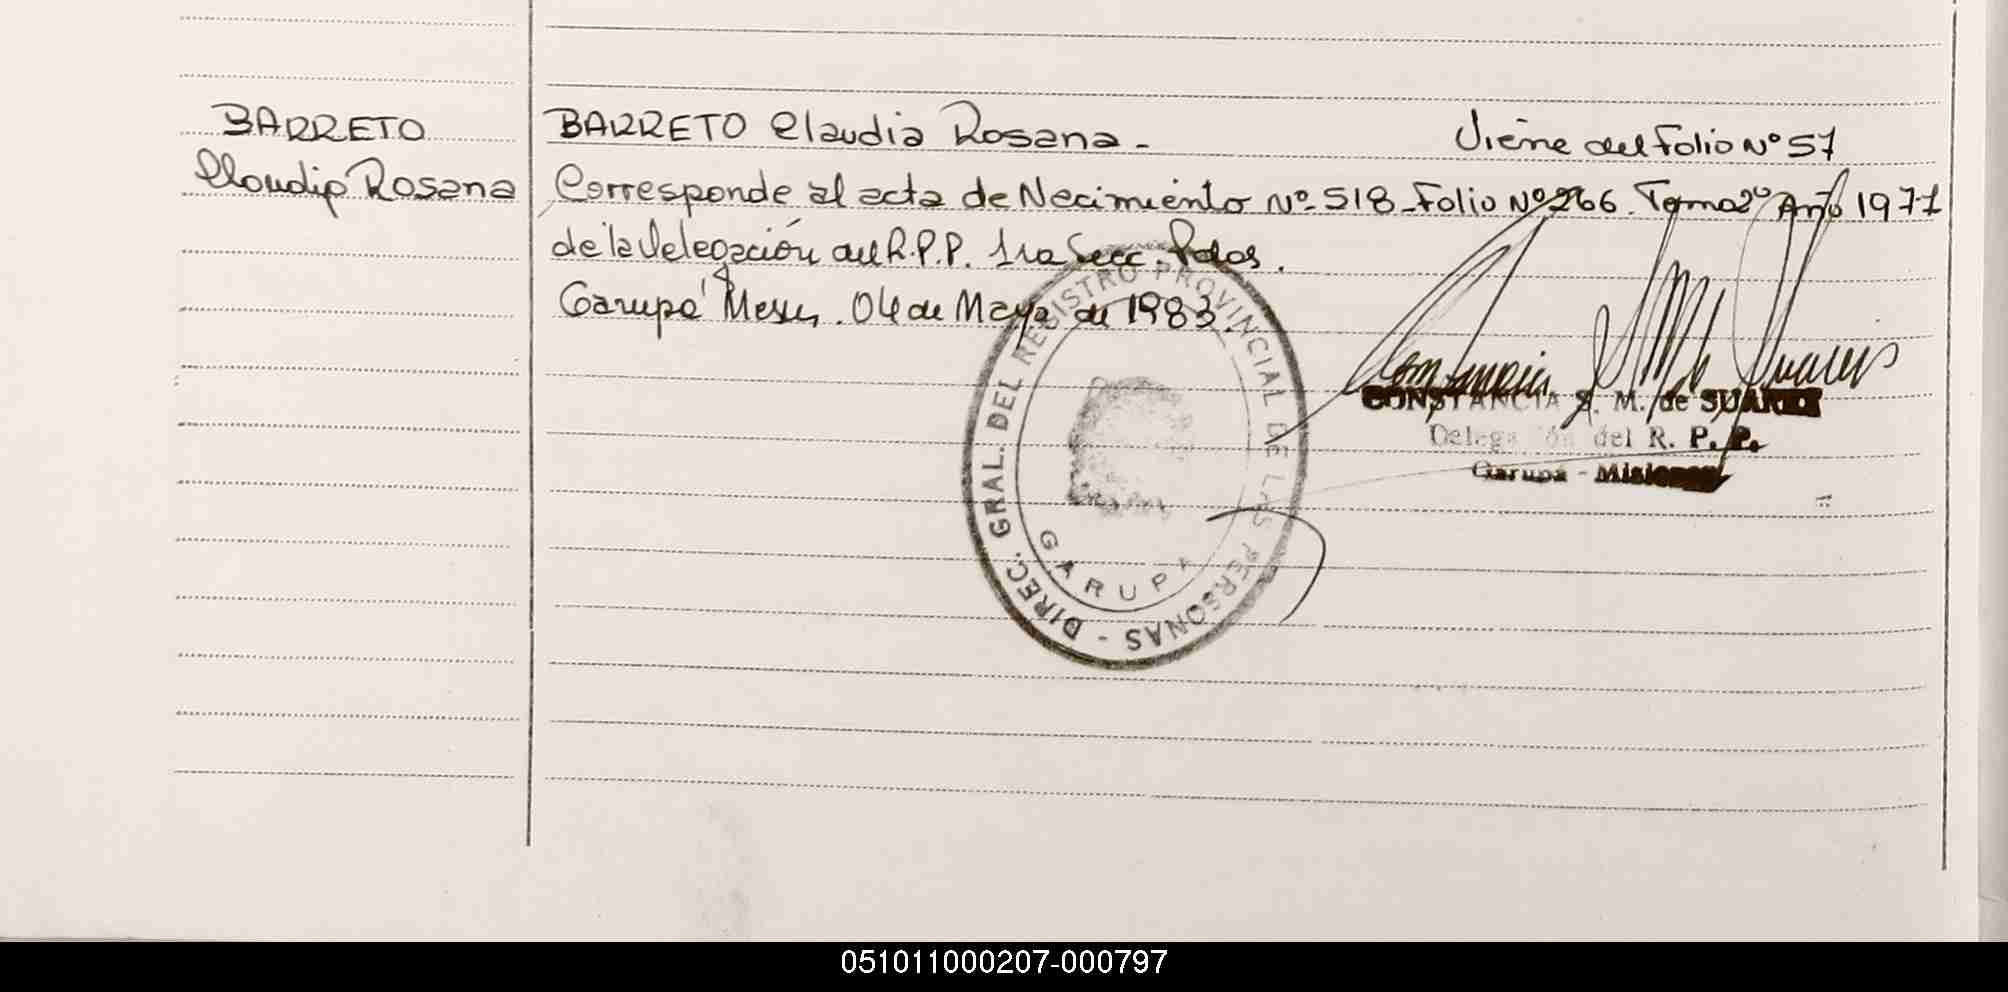 BARRETO
Claudia Rosana
BARRETO Claudia Rosana - Viene del Folio Nº 57
Corresponde al acta de Nacimiento Nº 518 - Folio Nº 266. Tomo 2º Año 1971
de la Delegación del R.P.P. 1ra Secc. Pdas.
Garupá Mnes. 04 de Mayo de 1983.
DIREC. GRAL. DEL REGISTRO PROVINCIAL DE LAS PERSONAS -
GARUPA
CONSTANCIA S. M. de SUAREZ
Delegación del R. P. P.
Garupa - Misiones
051011000207-000797